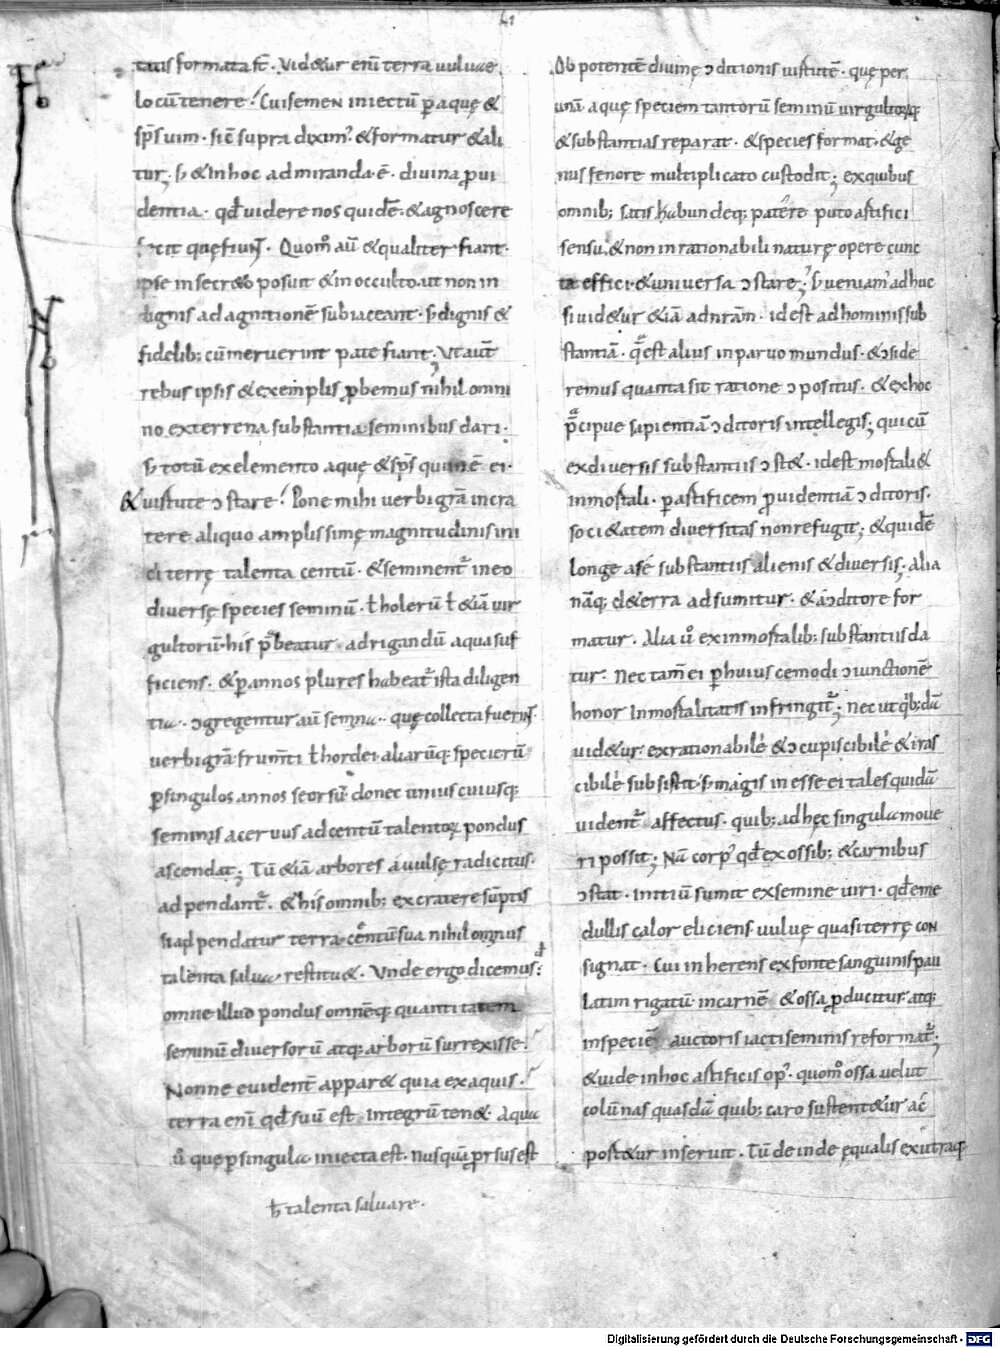 41
tatis formata st̄. Vid&ur eni᷎ terra uuluae
locū tenere! Cui semen iniectū p aquę &
sp̄s uim. sic̄ supra dixim᷒. & formatur & ali
tur; s; & in hoc admiranda ē. divina ꝓui
dentia. qđ uidere nos quidē. & agnoscere
fecit quę fiunt̄. Quom̊ aū & qualiter fiant.
ipse in secr&o posuit & in occulto. ut non in
dignis ad agnitionē subiaceant. s; dignis &
fidelib; cū meruerint pate fiant; Vt aut̄
rebus ipsis & exemplis ꝓbemus nihil omni
no ex terrena substantia seminibus dari.
s; totū ex elemento aquę & sp̄s qui inē ei.
& uirtute ɔstare! Pone mihi uerbi grā in cra
tere aliquo amplissimę magnitudinis ini
ci terrę talenta centū. & seminent᷑ in eo
diuersę species seminū. ł holerū ł &iā uir
gultorū. his p̄beatur ad rigandū aqua suf
ficiens. & p annos plures habeat᷑ ista diligen
tia. ɔgregentur aū semina. quę collecta fuerin̄t.
uerbi grā frum̄ti ł hordei. aliarūq; specierū
p singulos annos seorsū. donec unius cuiusq;
seminis aceruus ad centū talentoꝝ pondus
ascendat; Tū &iā arbores auulsę radicitus.
ad pendant᷑. & his omnib; ex cratere sūptis
si ad pendatur terra. centū sua nihilominus
talenta salua restitu&. Vnde ergo dicemus:
omne illud pondus omnēq; quantitatem
seminū diuersorū atq; arborū surrexisse!
Nonne euident̄ appar& quia ex aquis!
terra enī qđ suū est integrū ten&. Aqua
ů que p singula iniecta est. nusquā prorsus est
ħ talenta saluare.
Ob potentē diuinę ɔditionis uirtutē. quę per
unā aquę speciem tantorū seminū uirgultorūq;
& substantias reparat. & species format. & ge
nus fenore multiplicato custodit; ex quibus
omnib; satis habundeq; patere puto artifici
sensu. & non inrationabili naturę opere cunc
ta effici & uniuersa ɔstare; s; ueniam᷒ adhuc
si uid&ur &iā ad nr̄am. id est ad hominis sub
stantiā. q̄ est alius in paruo mundus. & ɔside
remus quanta sit ratione ɔpositus. & ex hoc
p̄cipue sapientiā ɔditoris intellegis; qui cū
ex diuersis substantiis ɔst&. id est mortali &
inmortali. p artificem ꝓuidentiā ɔditoris.
soci&atem diuersitas non refugit; & quidē
longe a sé substantiis alienis & diuersis. Alia
nāq; d& erra adsumitur. & a ɔditore for
matur. Alia ů ex inmortalib; substantiis da
tur. Nec tam̄ ei p huius cemodi ɔiunctionē
honor inmortalitatis infringit᷑; nec ut qb;dā
uid&ur. ex rationabile & ɔcupiscibile & iras
cibile subsistit. s; magis in esse ei tales quidā
uident᷑ affectus. quib; ad hęc singula moue
ri possit; Nā corp᷒ qđ ex ossib; & carnibus
ɔstat. initiū sumit ex semine uiri. qđ e me
dullis calor eliciens uuluę quasi terrę con
signat. Cui inherens ex fonte sanguinis pau
latim rigatū in carnē & ossa ꝓducitur. atq;
in speciē auctoris iacti seminis reformat᷑;
& uide in hoc artificis op᷒. quom̊ ossa uelut
colūnas quasdā quib; caro sustent&ur ac
port&ur inseruit. Tū deinde ęqualis ex utraq;
Digitalisierung gefördert durch die Deutsche Forschungsgemeinschaft - DFG